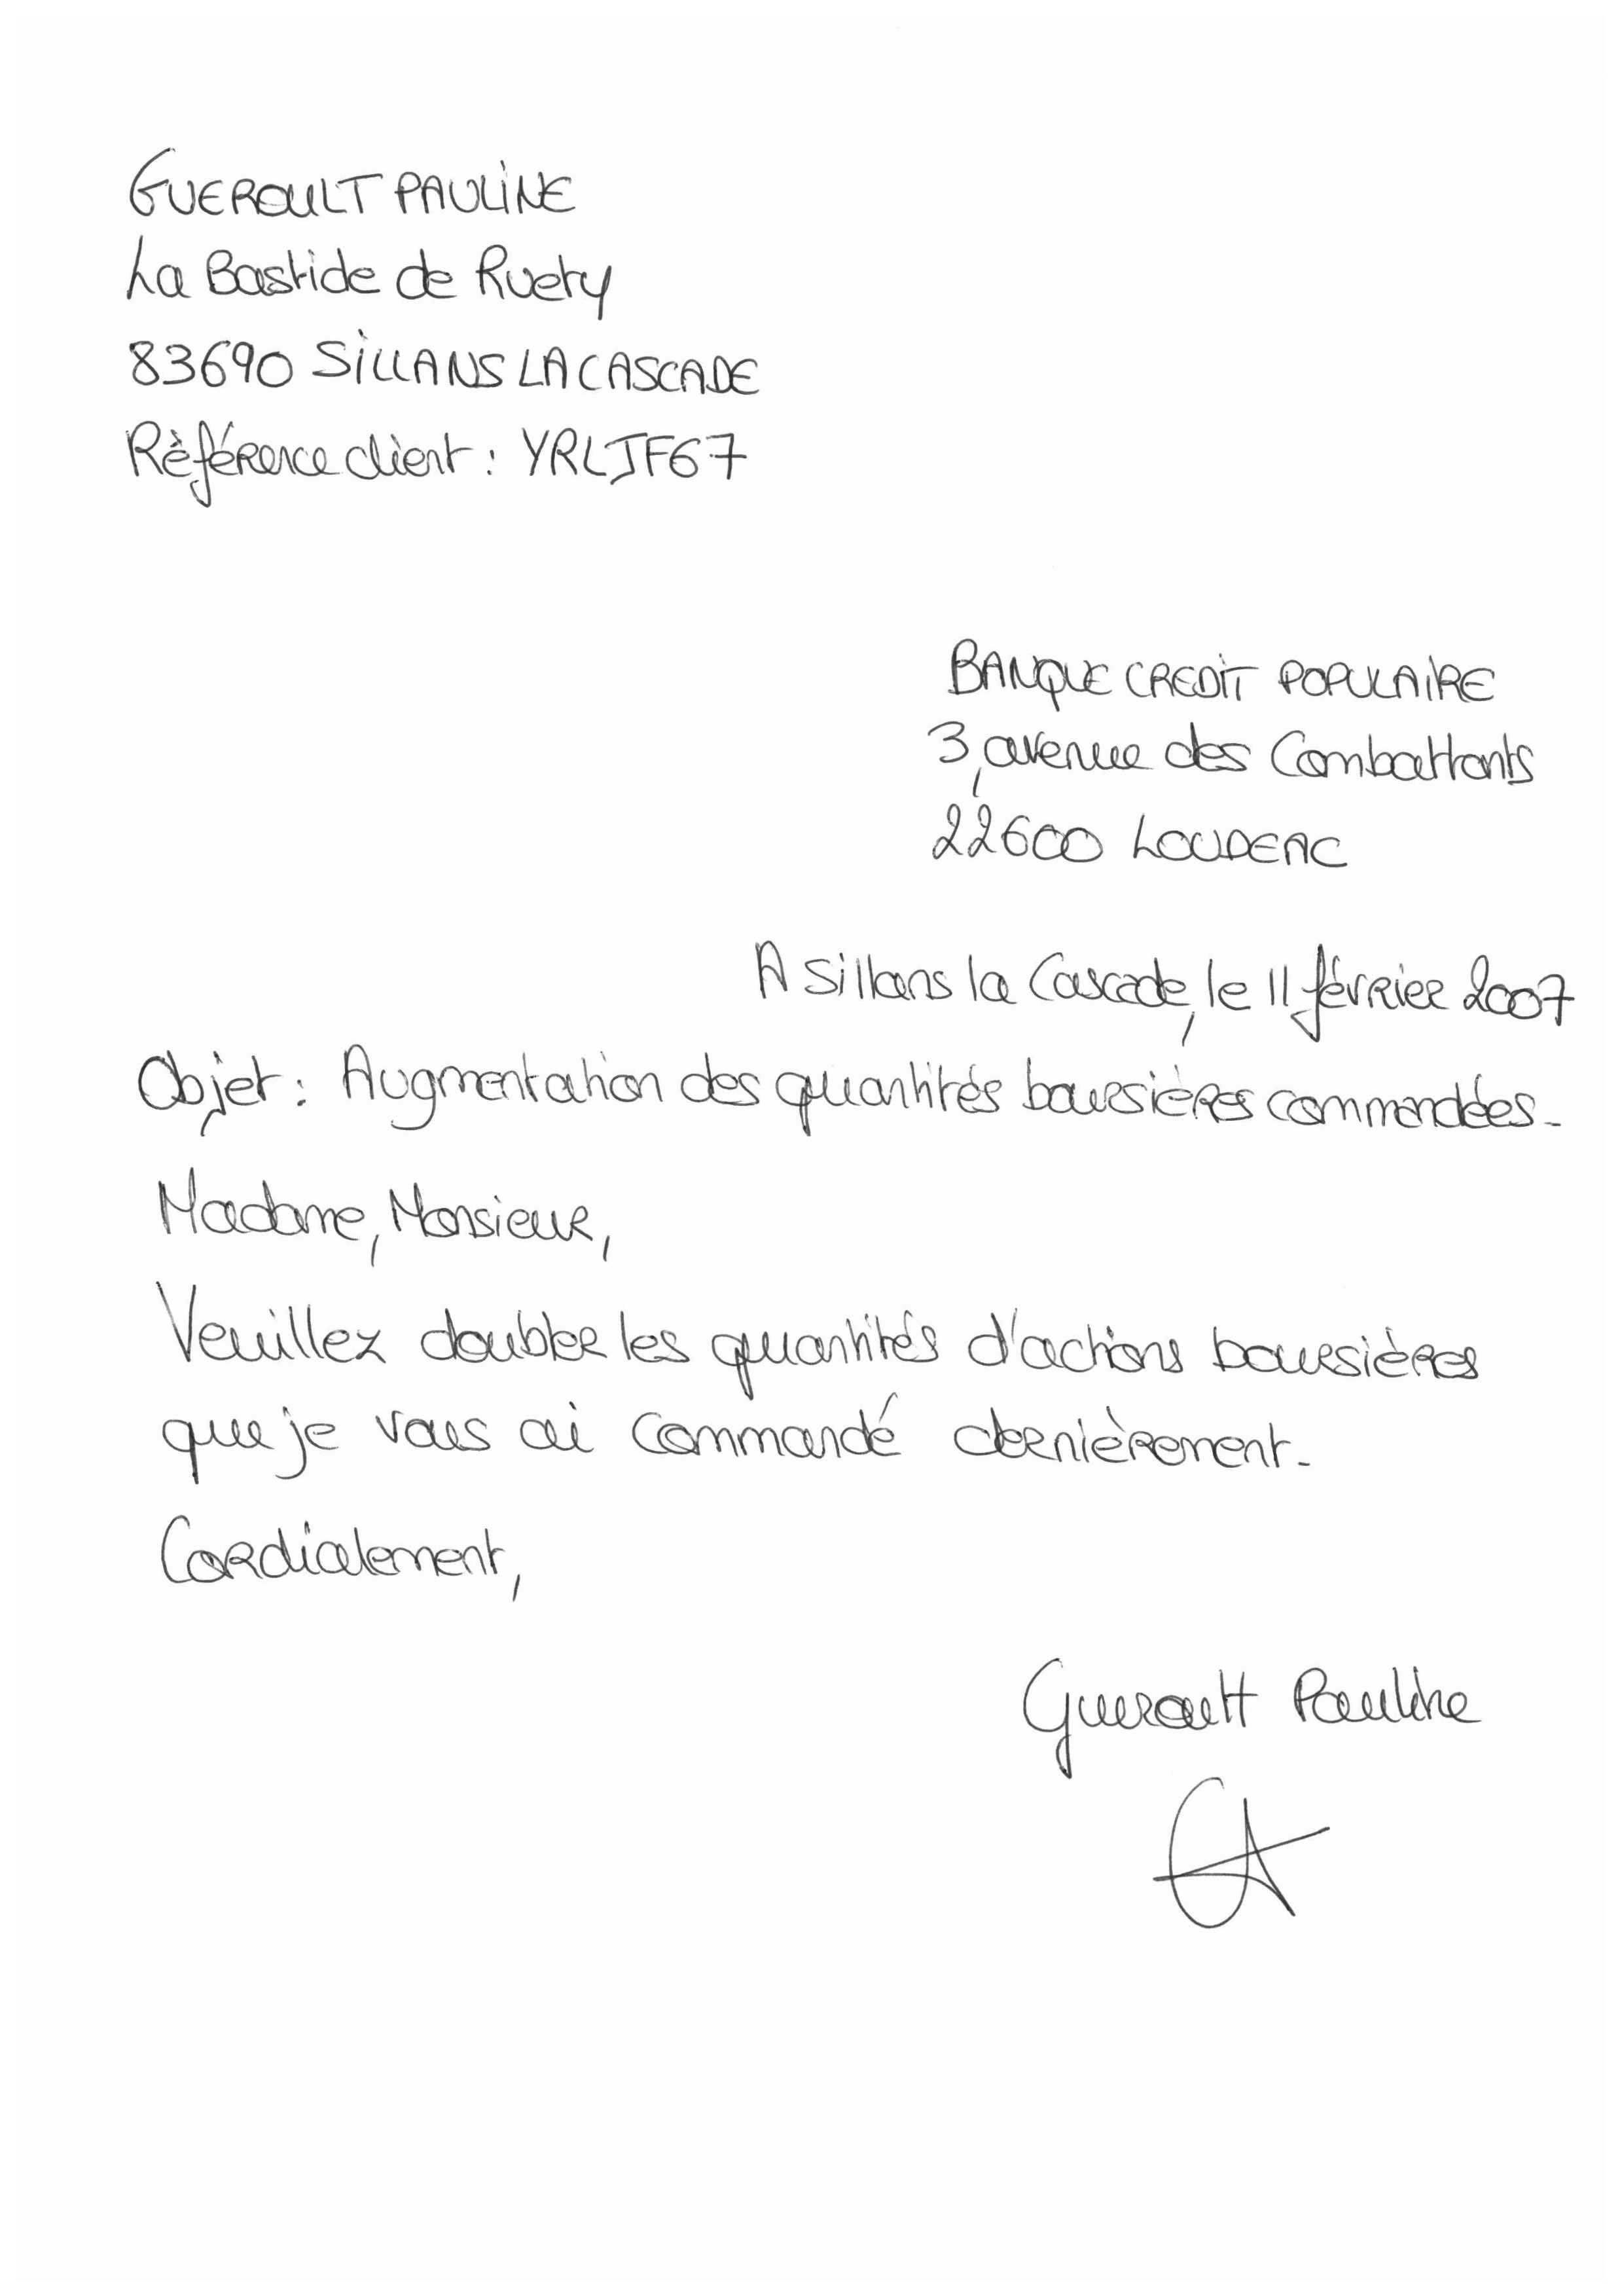 GUEROULT PAULINE
La Bastide de Ruety
83690 SILLANS LA CASCADE
Référence client : YRLJF67
BANQUE CREDIT POPULAIRE
3, avenue des Combattants
22600 LOUDEAC
A Sillans la Cascade, le 11 février 2007
Objet : Augmentation des quantités boursières commandées.
Madame, Monsieur,
Veuillez doubler les quantités d'actions boursières
que je vous ai commandé dernièrement.
Cordialement,
Gueroult Pauline